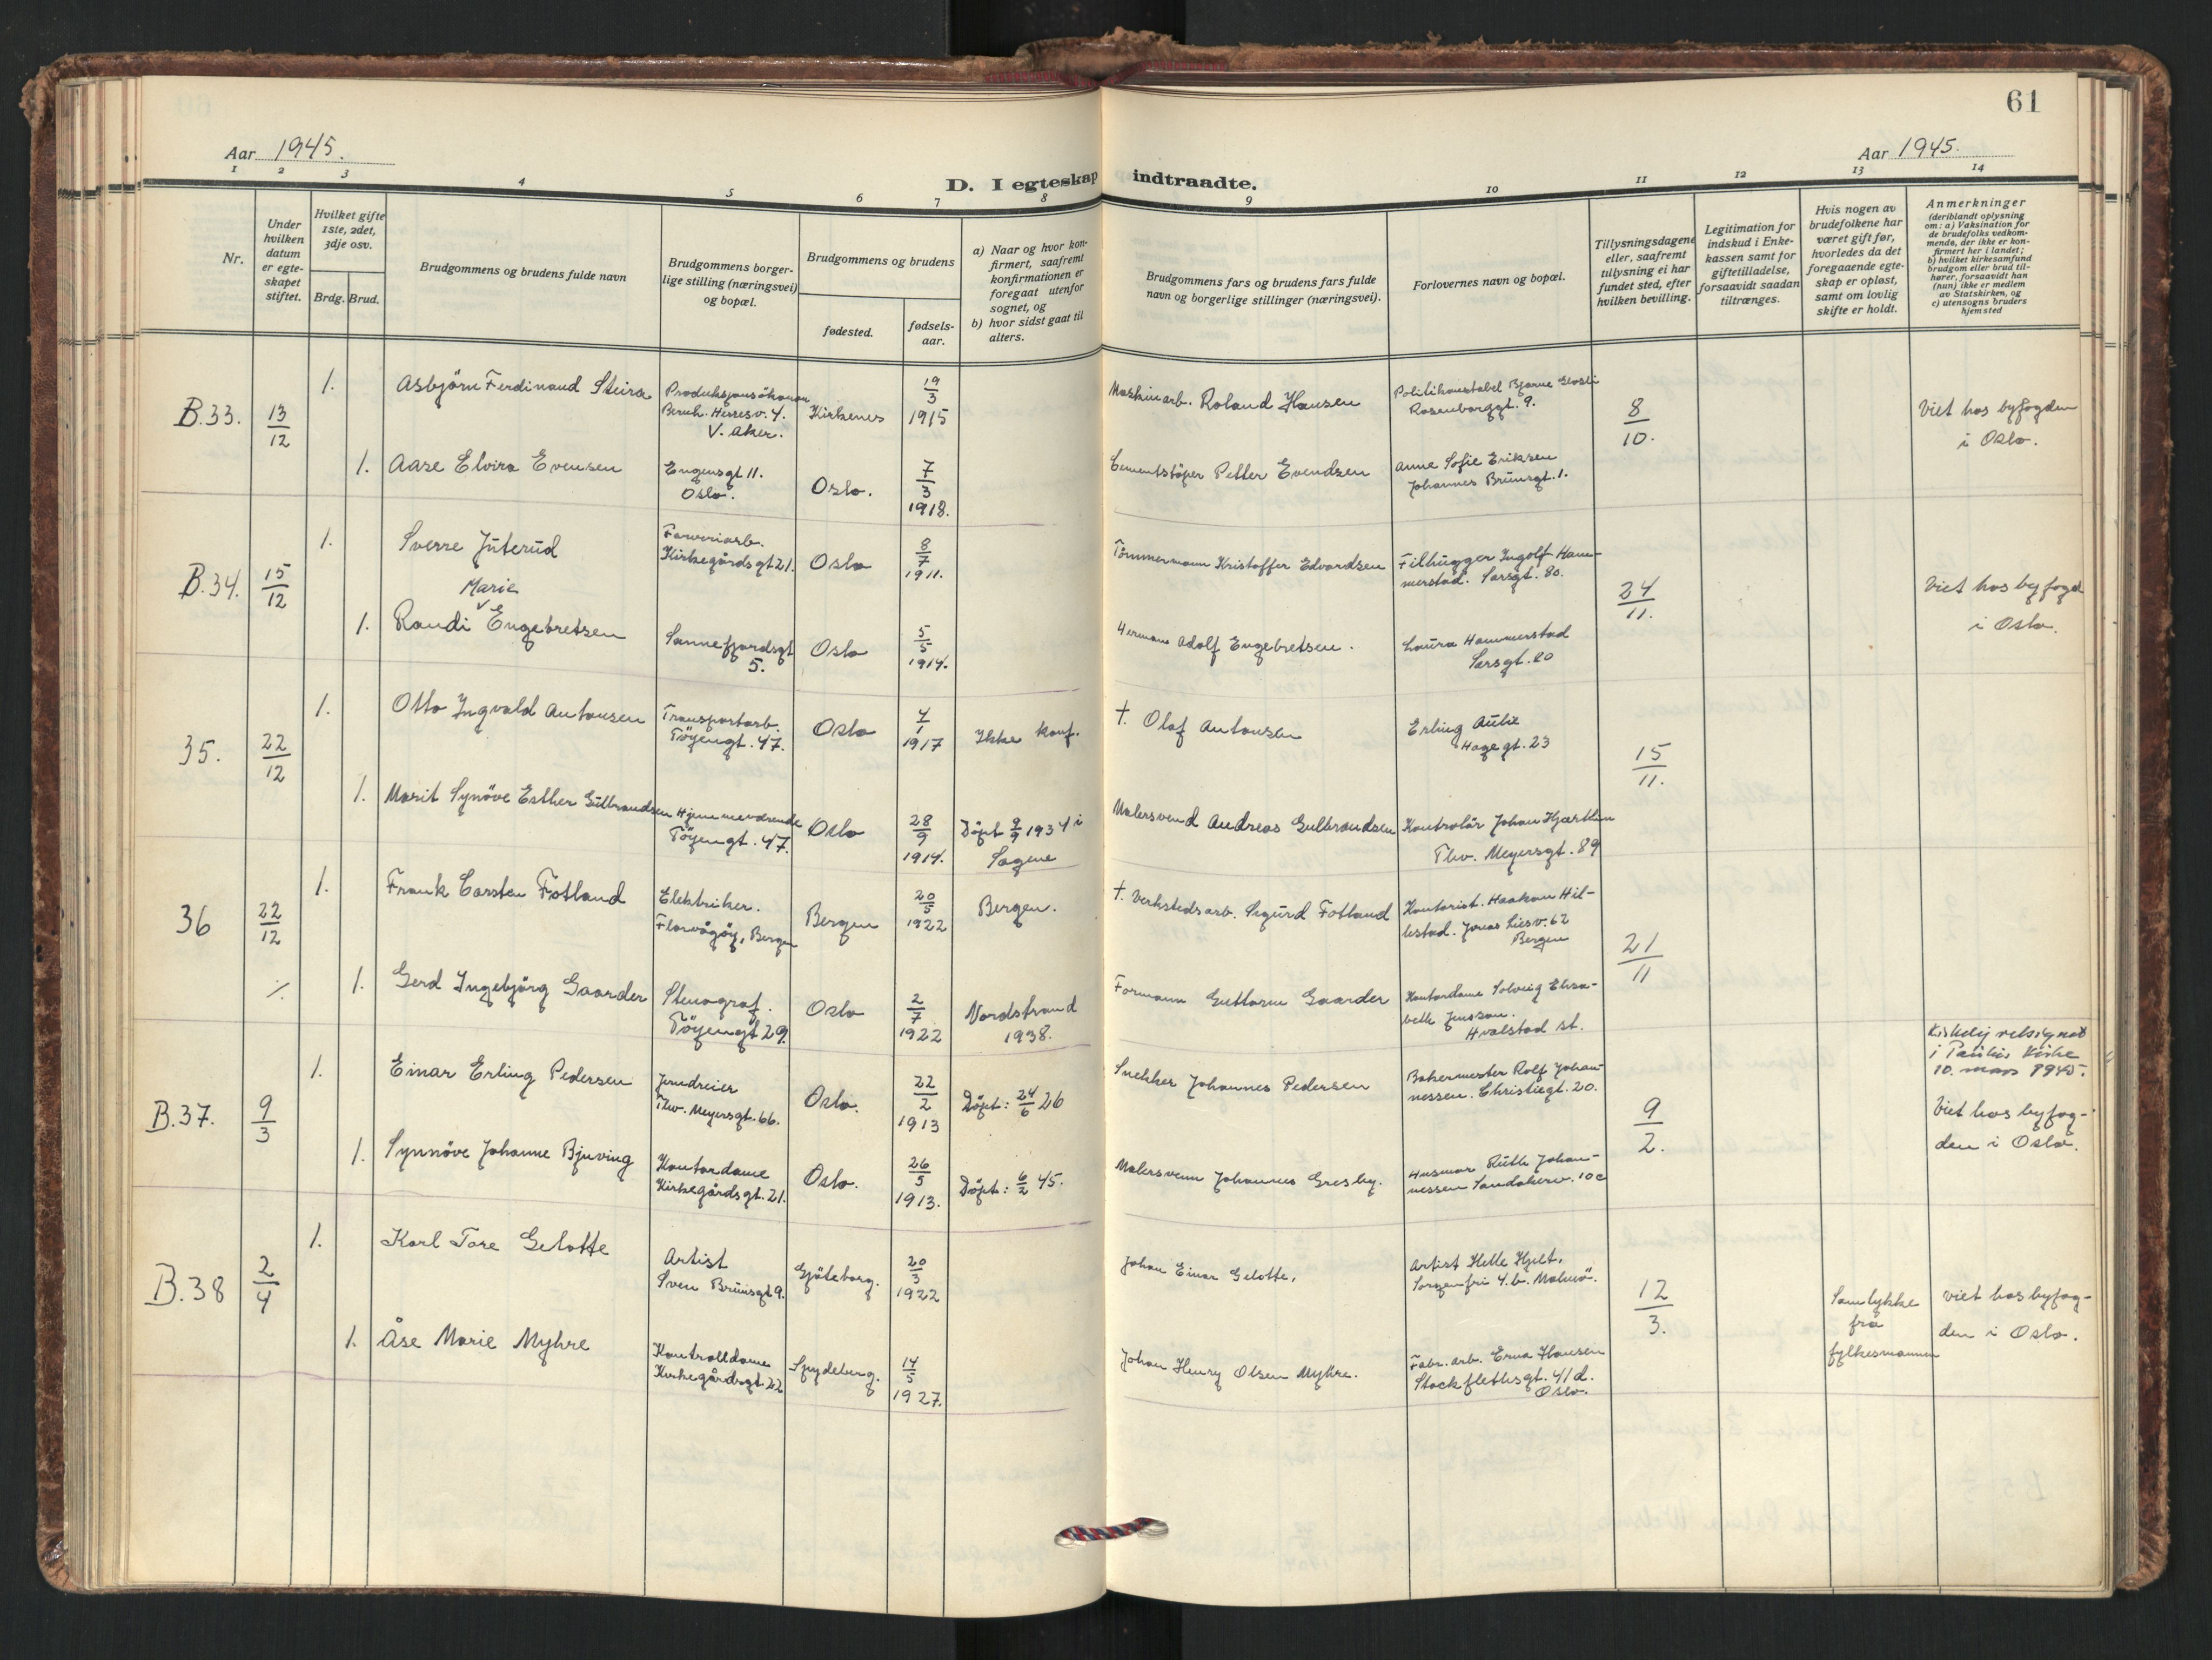 61
Aar 1945.
Aar 1945.
D. I egteskap indtraadte.
1 2 3 4 5 6 7 8 9 10 11 12 13 14
Nr.
Under
hvilken
datum
er egte-
skapet
stiftet.
Hvilket gifte
1ste, 2det,
3dje osv.
Brdg.
Brud.
Brudgommens og brudens fulde navn
Brudgommens borger-
lige stilling (næringsvei)
og bopæl.
Brudgommens og brudens
fødested.
fødsels-
aar.
a) Naar og hvor kon-
firmert, saafremt
konfirmationen er
foregaat utenfor
sognet, og
b) hvor sidst gaat til
alters.
Brudgommens fars og brudens fars fulde
navn og borgerlige stillinger (næringsvei).
Forlovernes navn og bopæl.
Tillysningsdagene
eller, saafremt
tillysning ei har
fundet sted, efter
hvilken bevilling.
Legitimation for
indskud i Enke-
kassen samt for
giftetilladelse,
forsaavidt saadan
tiltrænges.
Hvis nogen av
brudefolkene har
været gift før,
hvorledes da det
foregaaende egte-
skap er opløst,
samt om lovlig
skifte er holdt.
Anmerkninger
(deriblandt oplysning
om: a) Vaksination for
de brudefolks vedkom-
mende, der ikke er kon-
firmert her i landet;
b) hvilket kirkesamfund
brudgom eller brud til-
hører, forsaavidt han
(hun) ikke er medlem
av Statskirken, og
c) utensogns bruders
hjemsted
B.33.
13/12
1.
Asbjörn Ferdinand Steira
Produksjonsökonom
Bernh. Herresv. 4.
V. Aker.
Kirkenes
19/3
1915
Maskinarb. Roland Hansen
Politikonstabel Bjarne
Rosenborggt. 9.
8/10.
Viet hos byfogden
i Oslo.
1.
Aase Elvira Evensen
Engensgt 11.
Oslo.
Oslo.
7/3
1918.
Cementstöper Petter Evendsen
Anne Sofie Eriksen
Johannes Brunsgt. 1.
B.34.
15/12
1.
Sverre Juterud
Farveriarb.
Kirkegårdsgt 21.
Oslo
8/7
1911.
Tömmermann Kristoffer Edvardsen
Filhugger Ingolf Ham-
merstad. Sarsgt. 80.
24/11.
Viet hos byfogd
i Oslo.
Marie
1.
Randi Engebretsen
Sannefjordsgt
5.
Oslo
5/5
1914.
Herman Adolf Engebretsen.
Laura Hammerstad
Sarsgt. 80
35.
22/12
1.
Otto Ingvald Antonsen
Transportarb.
Töyengt. 47.
Oslo
4/1
1917
Ikke konf.
† Olaf Antonsen
Erling Aulie
Hagegt. 23
15/11.
1.
Marit Synöve Esther Gulbrandsen
Hjemmeværende
Töyengt. 47.
Oslo
28/9
1914.
Döpt 9/9 1934 i
Sagene
Malersvend Andreas Gulbrandsen
Kontrolör Johan Hjartlin
Thv. Meyersgt. 89
36
22/12
1.
Frank Carsten Fotland
Elektriker.
Florvågöy, Bergen
Bergen
20/5
1922
Bergen.
† Verkstedsarb. Sigurd Fotland
Kontorist. Haakon Hil-
lestad. Jonas Liesv. 62
Bergen
21/11
·/.
1.
Gerd Ingebjörg Gaarder
Stenograf.
Töyengt 29.
Oslo
2/7
1922
Nordstrand
1938.
Formann Guttorm Gaarder
Kontordame Solveig Elisa-
beth Jensson.
Hvalstad st.
Kirkelig velsignet
i Paulus Kirke
10. mars 1945.
B.37.
9/3
1.
Einar Erling Pedersen
Jerndreier
Thv. Meyersgt. 66.
Oslo.
22/2
1913
Döpt: 24/6 26
Snekker Johannes Pedersen
Bakermester Rolf Johan-
nessen. Christiegt. 20.
9/2.
Viet hos byfog-
den i Oslo.
1.
Synnöve Johanne Bjuving
Kontordame
Kirkegårdsgt. 21.
Oslo.
26/5
1913.
Döpt: 6/2 45.
Malersvenn Johannes Gresby.
Husmor Ruth Johan-
nessen Sandakerv. 10c
B.38
2/4
1.
Karl Tore Gelotte
Artist
Sven Brunsgt 9.
Gjöteborg.
20/3
1922
Johan Einar Gelotte.
Artist Helle Hjelt.
Sorgenfri 4. b. Malmö.
12/3.
Samtykke
fra
fylkesmannen
viet hos byfog-
den i Oslo.
1.
Åse Marie Myhre
Kontrolldame
Kirkegårdsgt. 22
Spydeberg.
14/5
1927.
Johan Henry Olsen Myhre.
Fabr. arb. Erna Hansen
Stockflethsgt. 41 d.
Oslo.